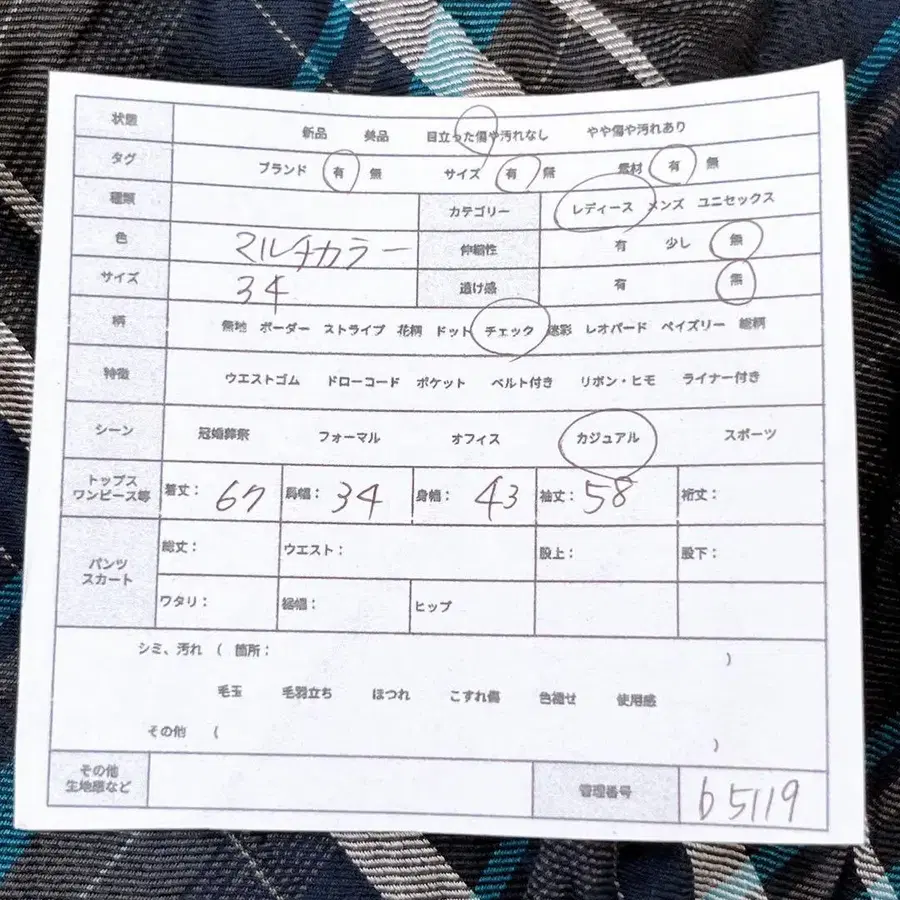 状態 新品 美品 目立った傷や汚れなし やや傷や汚れあり
タグ ブランド 有 無 サイズ 有 無 素材 有 無
種類 カテゴリー レディース メンズ ユニセックス
色 マルチカラー 伸縮性 有 少し 無
サイズ 34 透け感 有 無
柄 無地 ボーダー ストライプ 花柄 ドット チェック 迷彩 レオパード ペイズリー 総柄
特徴 ウエストゴム ドローコード ポケット ベルト付き リボン・ヒモ ライナー付き
シーン 冠婚葬祭 フォーマル オフィス カジュアル スポーツ
トップス
ワンピース等 着丈: 67 肩幅: 34 身幅: 43 袖丈: 58 裄丈:
パンツ
スカート 総丈: ウエスト: 股上: 股下:
ワタリ: 裾幅: ヒップ
シミ、汚れ ( 箇所: )
毛玉 毛羽立ち ほつれ こすれ傷 色褪せ 使用感
その他 ( )
その他
生地感など 管理番号 b5119